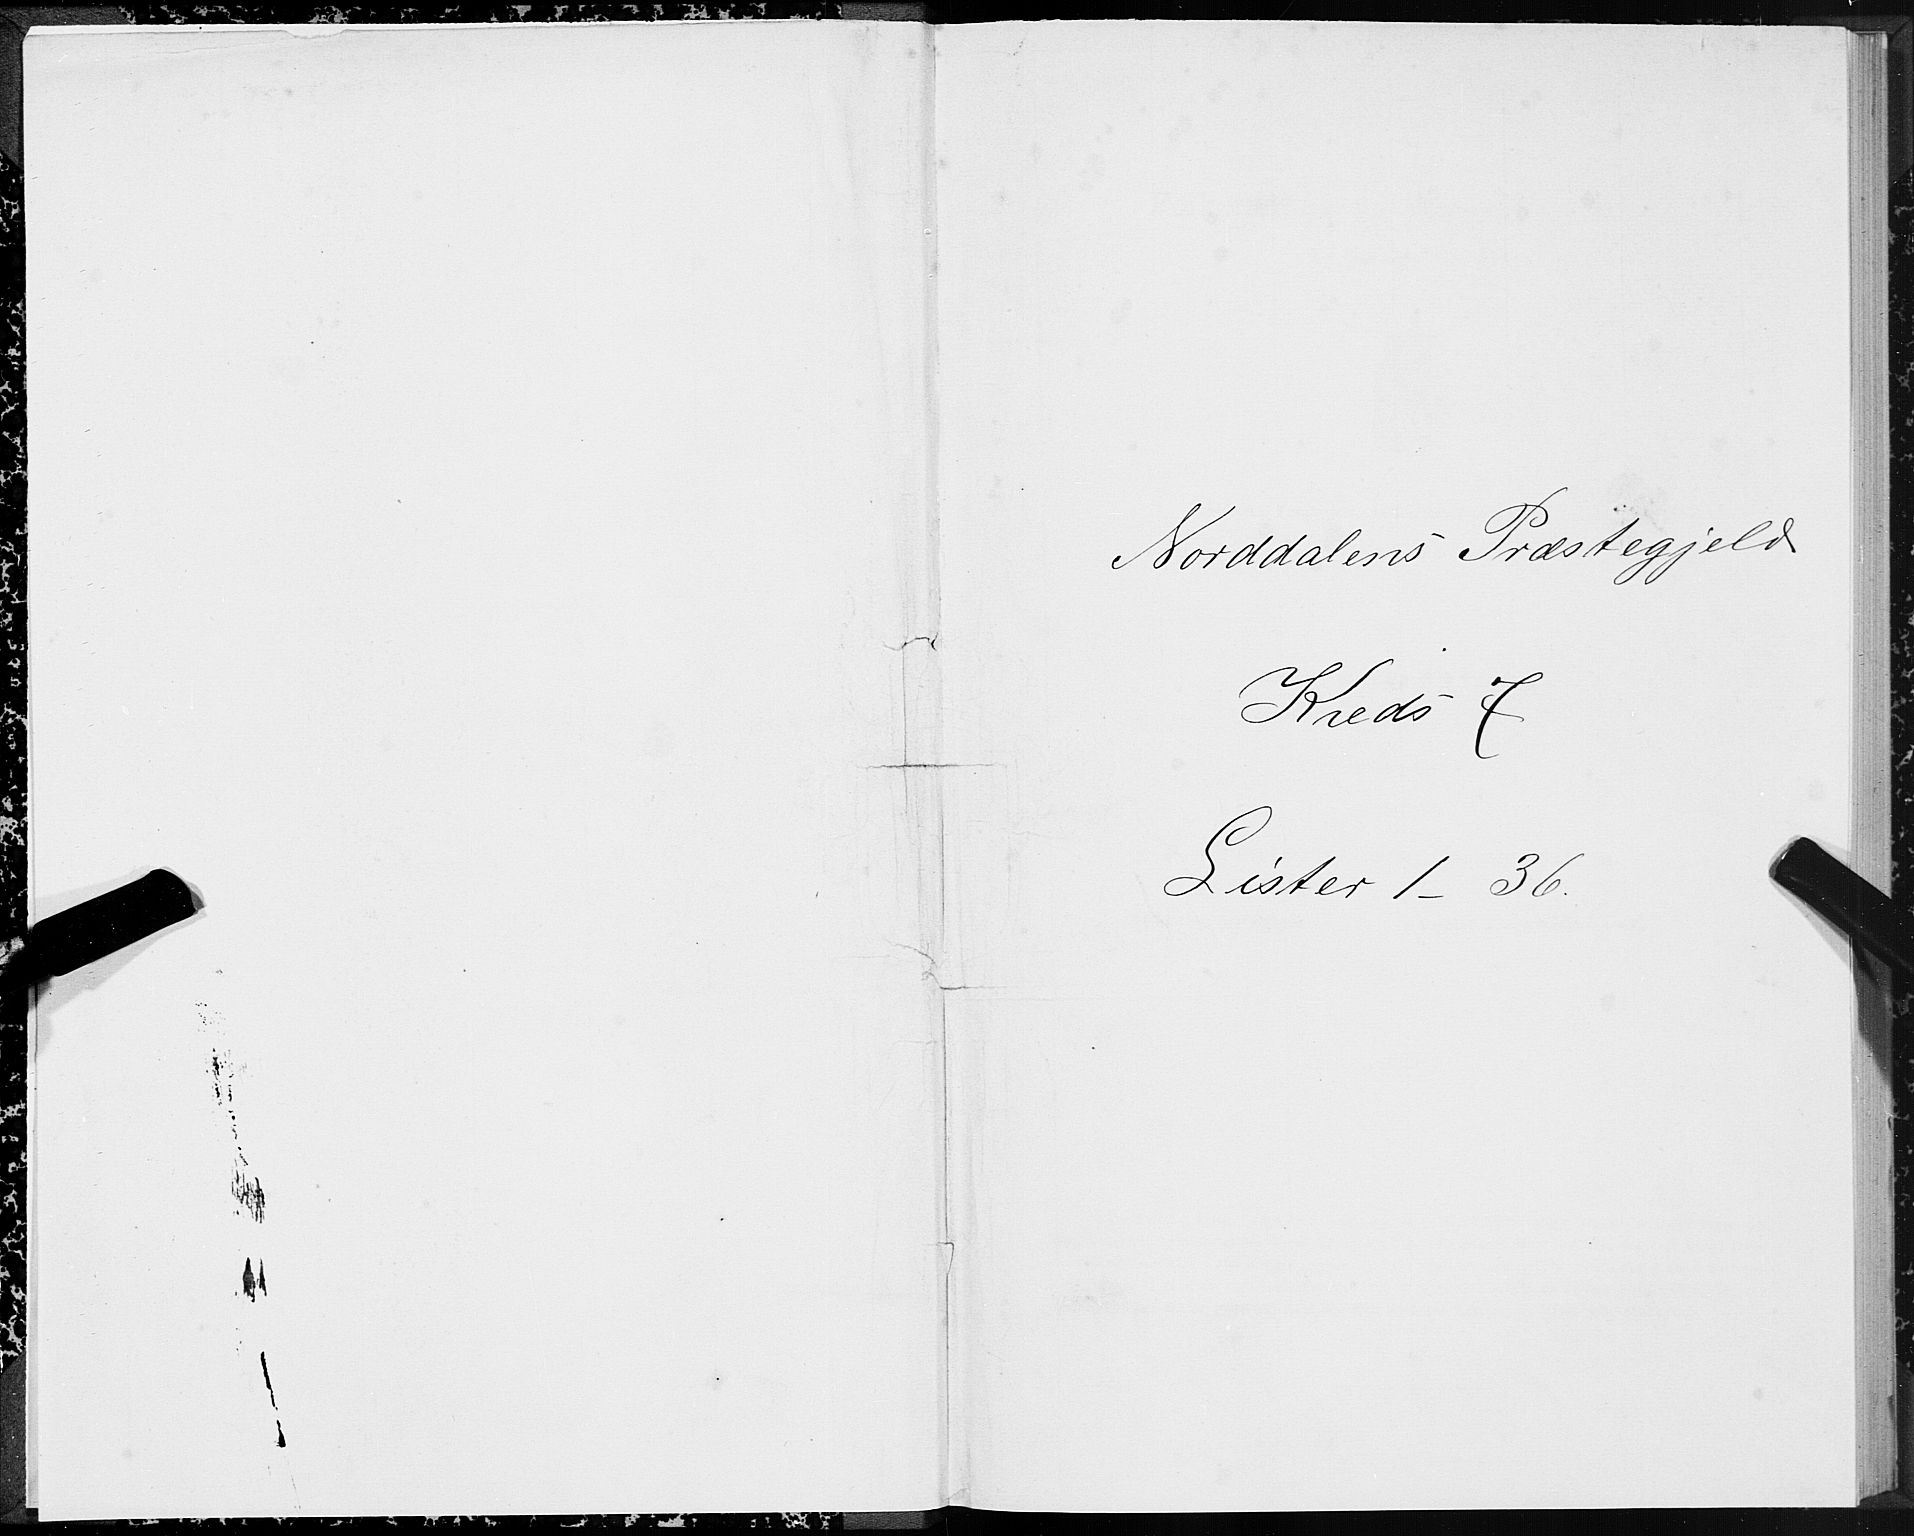 Norddalens Præstegjeld
Kreds 7
Lister 1 - 36.